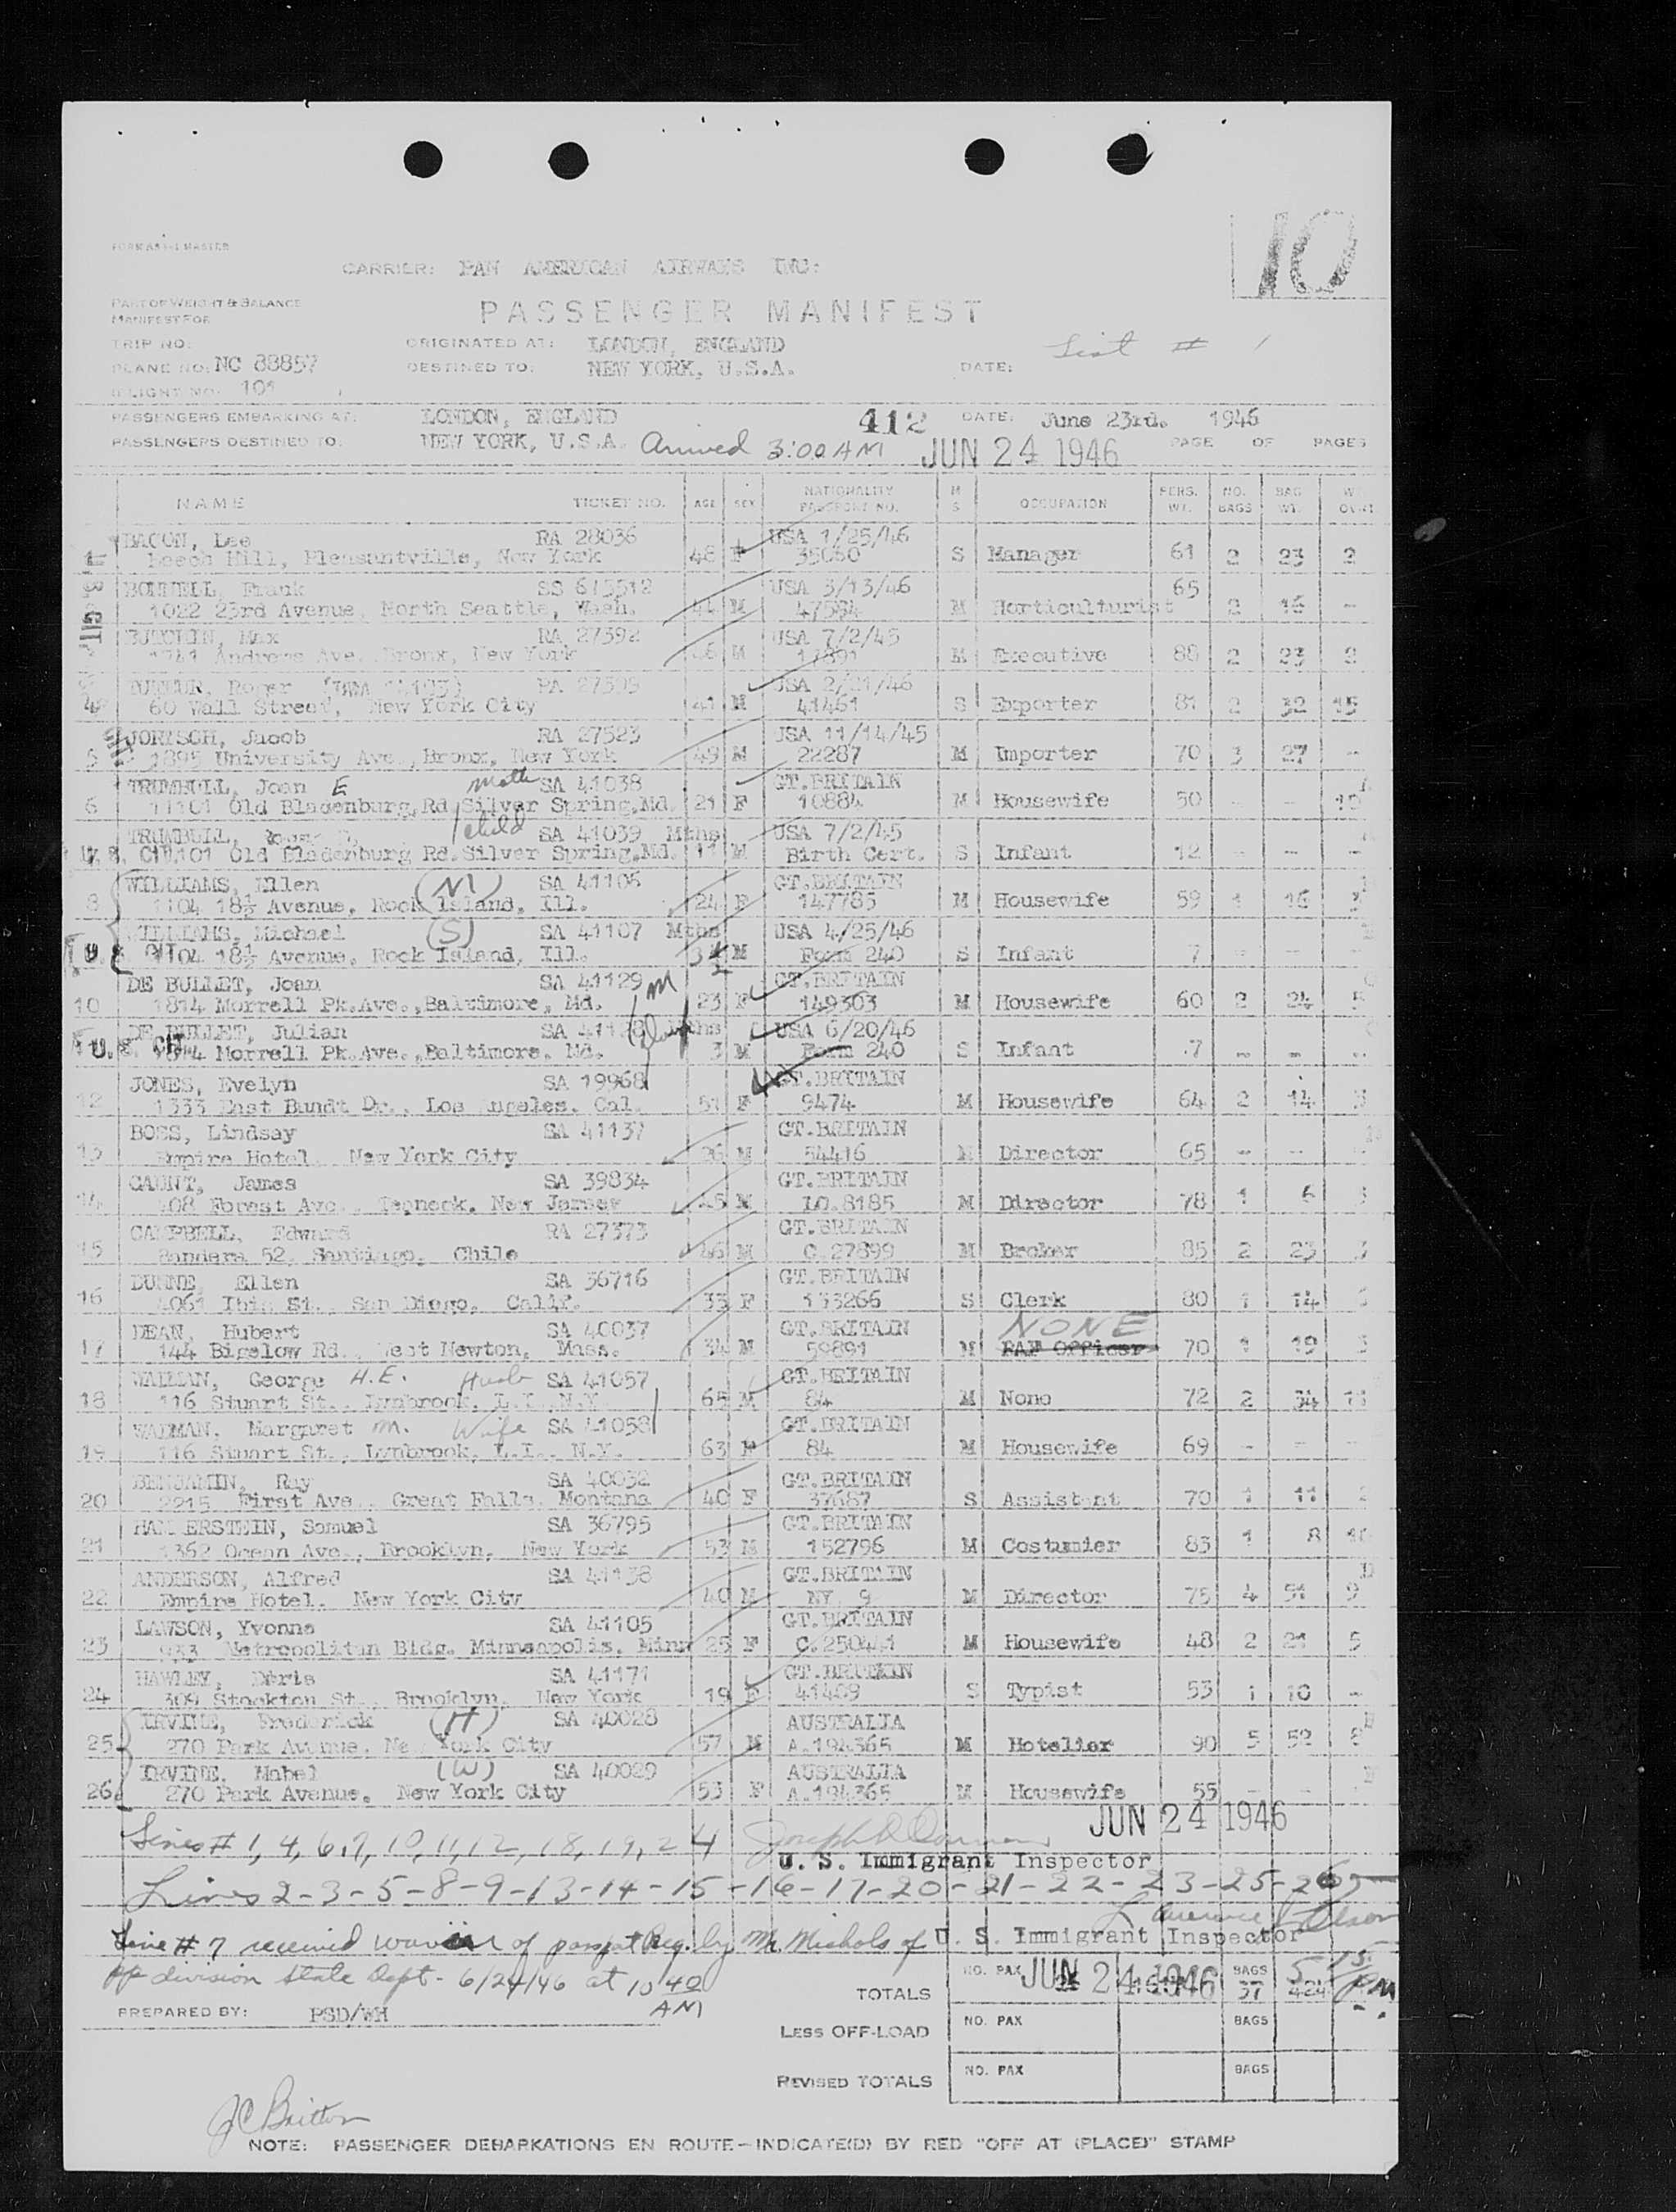 10
CARRIER: PAN AMERICAN AIRWAYS INC:
PART OF WEIGHT & BALANCE
MANIFEST FOR
PASSENGER MANIFEST
TRIP NO:
ORIGINATED AT: LONDON, ENGLAND
List # 1
PLANE NO: NC 88857
DESTINED TO: NEW YORK, U.S.A.
DATE:
FLIGHT NO: 101
PASSENGERS EMBARKING AT: LONDON, ENGLAND 412 DATE: June 23rd. 1946
PASSENGERS DESTINED TO: NEW YORK, U.S.A. Arrived 3:00 AM JUN 24 1946 PAGE OF PAGES
NAME TICKET NO. AGE SEX NATIONALITY PASSPORT NO. M S OCCUPATION PERS. WT. NO. BAGS BAG WT.
BACON, Lee RA 28036 USA 1/25/46
Beech Hill, Pleasantville, New York 48 F 35060 S Manager 61 2 23 2
BONNELL, Frank SS 615512 USA 3/13/46 65
1022 23rd Avenue, North Seattle, Wash. 44 M M Horticulturist 2 16 -
Max RA 27392 USA 7/2/45
Andrews Ave. Bronx, New York 46 M M Executive 88 2 23
Roger USA
4 60 Wall Street, New York City 41 M 41461 S Exporter 81 2 32 15
JORISCH, Jacob RA 27523 USA 11/14/45
5 1895 University Ave., Bronx, New York 49 M 22287 M Importer 70 3 27 -
TRUMBULL, Joan E SA 41038 GT.BRITAIN
6 11101 Old Bladenburg, Rd Silver Spring, Md. 21 F 10884 M Housewife 50 - -
TRUMBULL, child SA 41039 Mths USA 7/2/45
U.S. CIT. Old Bladenburg Rd. Silver Spring, Md. 11 M Birth Cert. S Infant 12 - - -
WILLIAMS, Ellen (M) SA 41106 GT.BRITAIN
8 1104 18½ Avenue, Rock Island, Ill. 24 F 147785 M Housewife 59 1 16
WILLIAMS, Michael (S) SA 41107 Mths USA 4/25/46
1104 18½ Avenue, Rock Island, Ill. 3½ M Form 240 S Infant 7 - -
DE BULLET, Joan SA 41129 M GT.BRITAIN
10 1814 Morrell Pk.Ave., Baltimore, Md. 23 F 149303 M Housewife 60 2 24 5
DE BULLET, Julian USA 6/20/46
U.S. CIT. Morrell Pk.Ave., Baltimore, Md. 3 M Form 240 S Infant 7 - -
JONES, Evelyn SA 19968 GT.BRITAIN
12 1333 East Bundt Dr., Los Angeles, Cal. 51 F 9474 M Housewife 64 2 14
BOSS, Lindsay SA 41137 GT.BRITAIN
13 Empire Hotel New York City 36 M 54416 M Director 65 - -
GAUNT, James SA 39834 GT.BRITAIN
14 Forest Ave., Teaneck, New Jersey 45 M LO.8185 M Director 78 1 6
CAMPBELL, Edward RA 27373 GT.BRITAIN
15 Bandera 52, Santiago, Chile 46 M C.27899 M Broker 85 2 23
DUNNE, Ellen SA 36716 GT.BRITAIN
16 4061 Ibis St., San Diego, Calif. 33 F 133266 S Clerk 80 1 14
DEAN, Hubert SA 40037 GT.BRITAIN NONE
17 144 Bigelow Rd., West Newton, Mass. 34 M 59891 M RAF Officer 70 1 19
George H.E. Husb SA 41057 GT.BRITAIN
18 116 Stuart St., Lynbrook, L.I., N.Y. 65 M 84 M None 72 2 34
WADMAN, Margaret M. Wife SA 41058 GT.BRITAIN
19 116 Stuart St., Lynbrook, L.I., N.Y. 63 F 84 M Housewife 69 - - -
BENJAMIN, Ray SA 40032 GT.BRITAIN
20 2215 First Ave., Great Falls, Montana 40 F 37687 S Assistant 70 1 11
HAMMERSTEIN, Samuel SA 36795 GT.BRITAIN
21 1362 Ocean Ave., Brooklyn, New York 53 M 152796 M Costumier 83 1 8 10
ANDERSON, Alfred SA 41138 GT.BRITAIN
22 Empire Hotel. New York City 40 M NY 9 M Director 75 4 51 9
LAWSON, Yvonne SA 41105 GT.BRITAIN
23 933 Metropolitan Bldg. Minneapolis, Minn 25 F C.250441 M Housewife 48 2 21 5
HAWLEY, Doris SA 41171 GT.BRITAIN
24 309 Stockton St., Brooklyn, New York 19 F 41409 S Typist 53 1 10 -
IRVINE, Frederick (H) SA 40028 AUSTRALIA
25 270 Park Avenue, New York City 57 M A.194365 M Hotelier 90 5 52 8
IRVINE, Mabel (W) SA 40029 AUSTRALIA
26 270 Park Avenue, New York City 53 F A.194365 M Housewife 55 - -
JUN 24 1946
Lines # 1, 4, 6, 7, 10, 11, 12, 18, 19, 24
U. S. Immigrant Inspector
Lines 2-3-5-8-9-13-14-15-16-17-20-21-22-23-25-26
Line # 7 received waiver of passpt Req. by Mr. Michols of U. S. Immigrant Inspector
PP division State Dept - 6/24/46 at 10 40 AM
TOTALS NO. PAX JUN 24 1946 BAGS 37 424 5 15 PM
PREPARED BY: PSD/WH
LESS OFF-LOAD NO. PAX BAGS
REVISED TOTALS NO. PAX BAGS
JC Britton
NOTE: PASSENGER DEBARKATIONS EN ROUTE—INDICATE(D) BY RED "OFF AT (PLACE)" STAMP